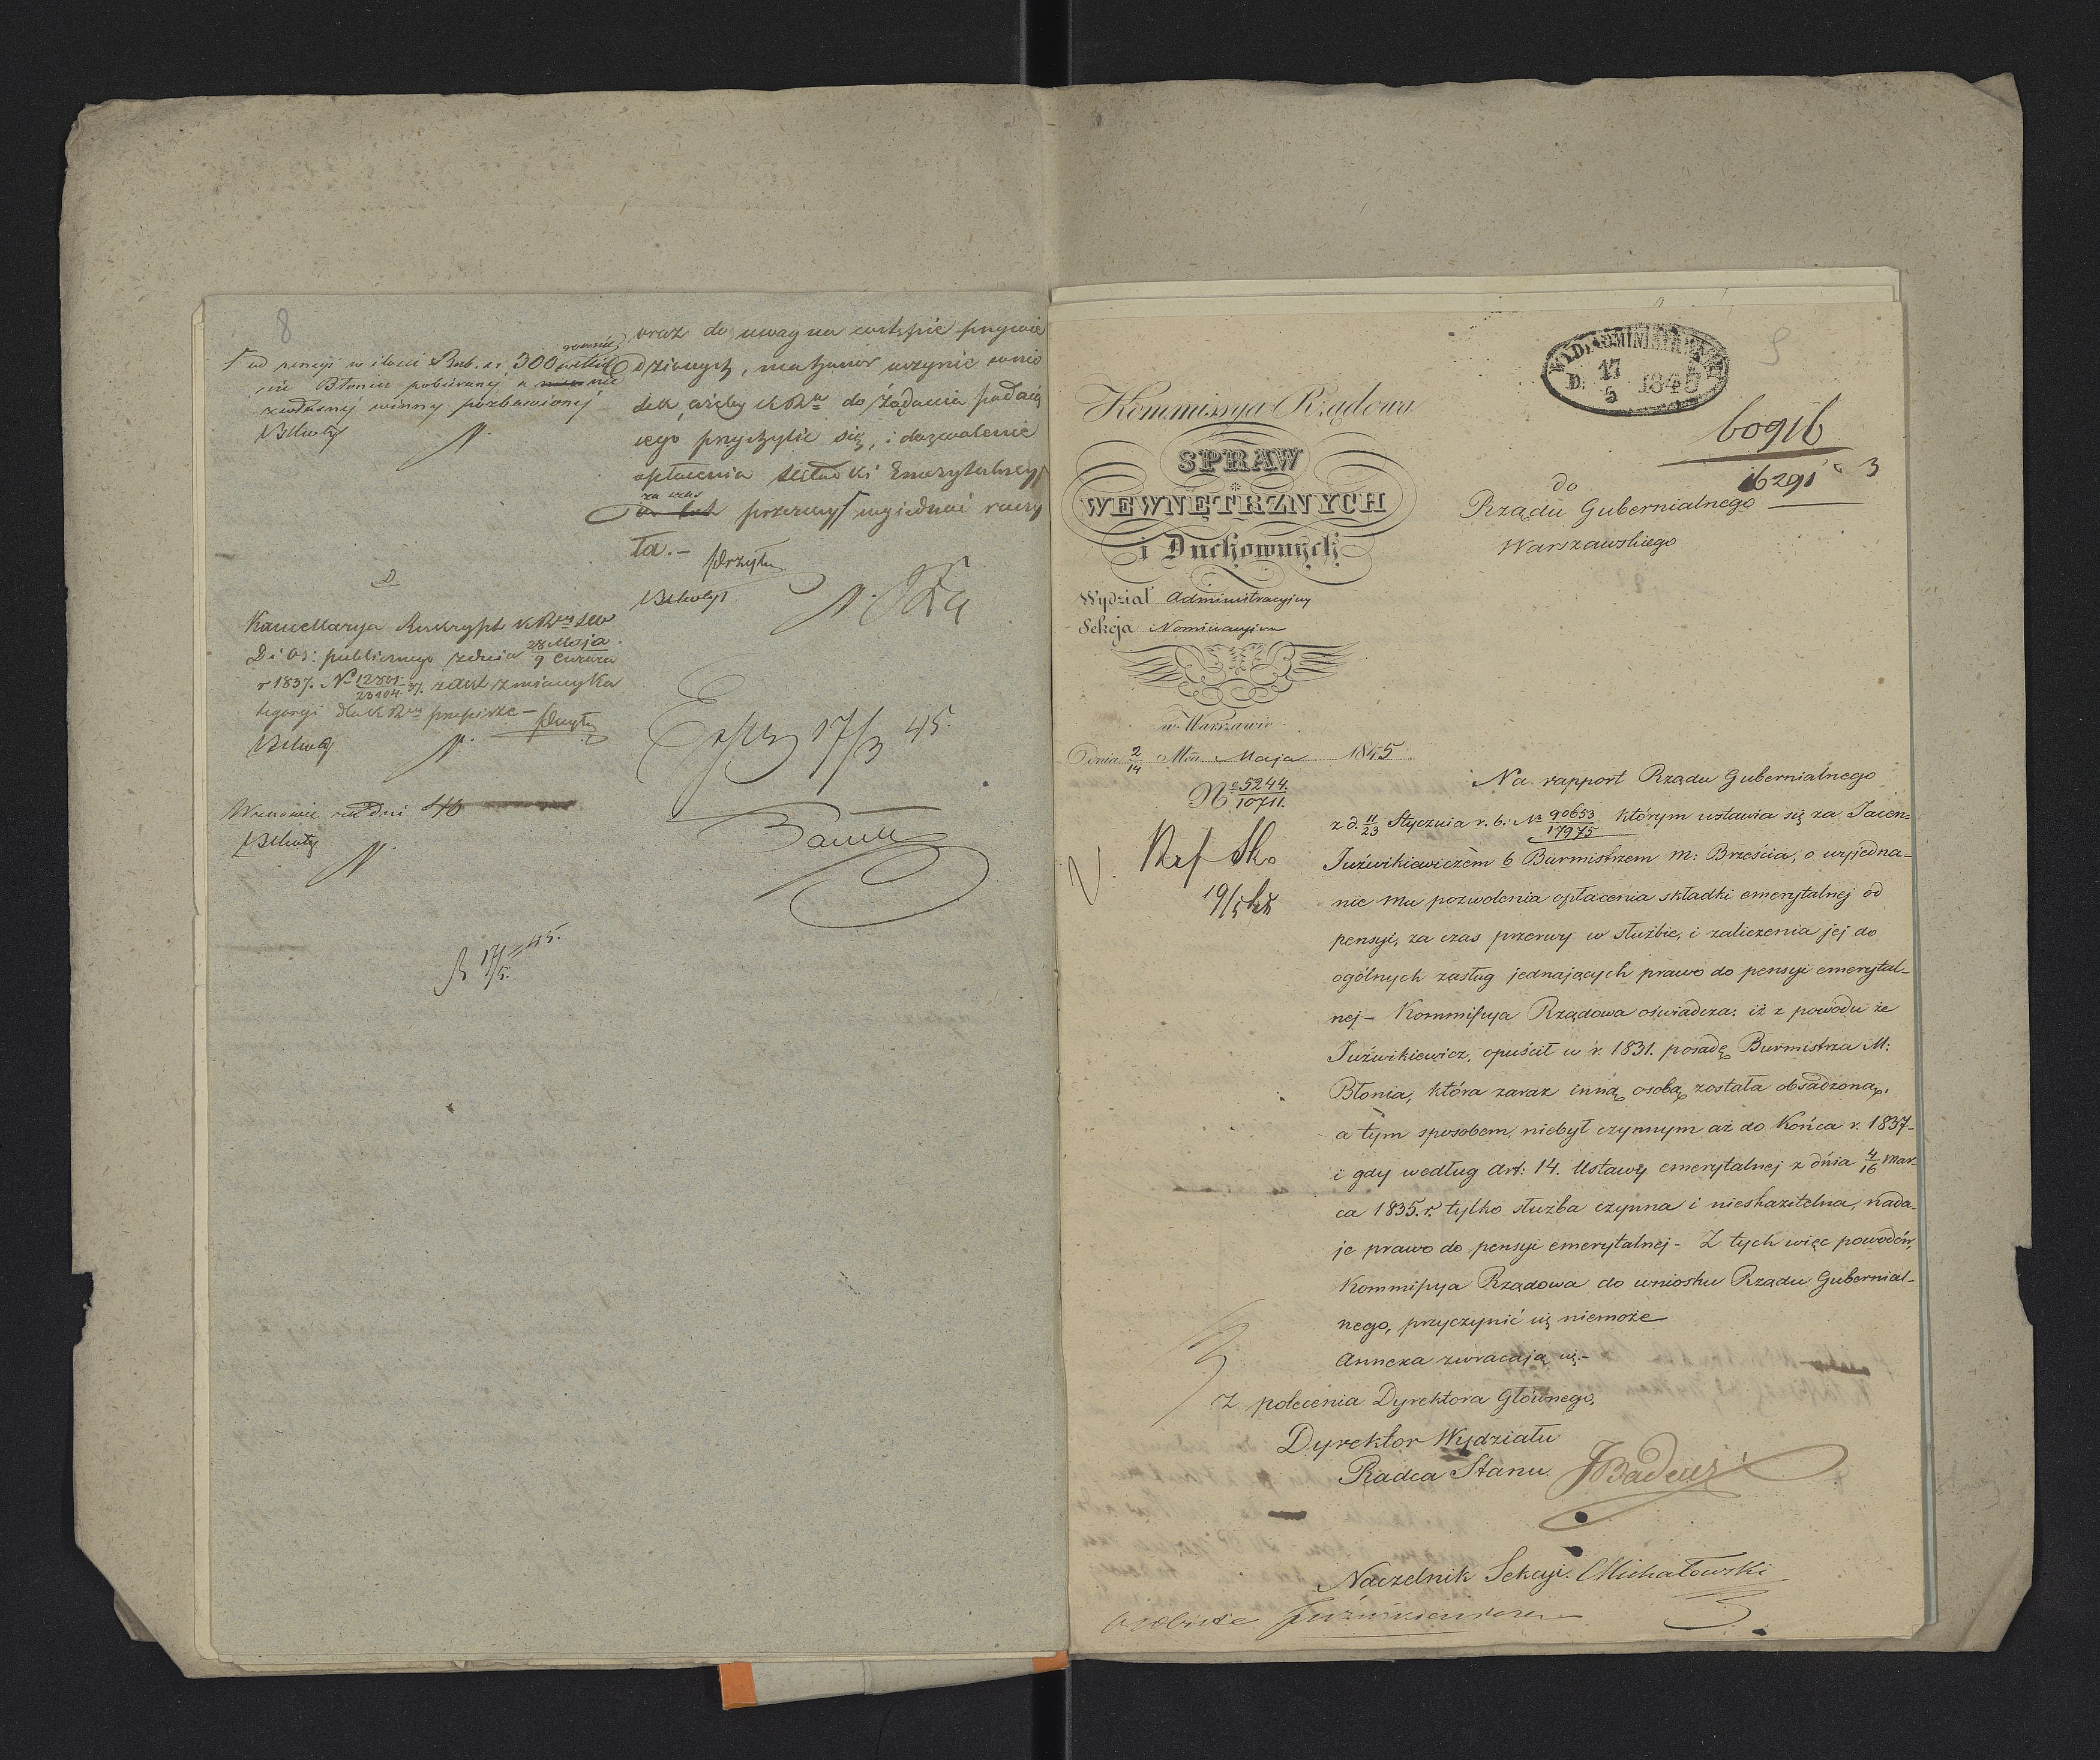 8
od pensyi w ilości Rub. sr. 300 rocznie
w Błoniu pobieranej a nie
z własnej winny pozbawionej
oraz do uwag na wstępie przywie
dzionych, ma honor uczynić wnio
sek, ażeby K R do żądania podają
cego przychylić się, i dozwolenie
opłacenia składki Emerytalnej
za czas
przerwy wyjednać raczy
ła.–
Kancellarya Reskrypt K R S W
D i Oś: publicznego z dnia 28 Maja / 9 Czerwca
r 1837. No 12801 / 23104 37. z akt zmiany Ka
tegoryi dla K R przepisze –
Wznowić za dni 40
Exp 17/3 45.
17/5 45.
9
WYD. ADMINISTRACYJNY
D. 17/5 1845
60916
16291
3
Kommissya Rządowa
SPRAW
WEWNĘTRZNYCH
i Duchownych
Wydział Administracyjny
Sekcja Nominacyjna
w Warszawie
Dnia 2/14 Mca Maja 1845
No 5244. / 10711.
19/5
do
Rządu Gubernialnego
Warszawskiego
Na rapport Rządu Gubernialnego
z d. 11/23 Stycznia r. b. No 90653 / 17975 którym wstawia się za Jacen-
Juźwikiewiczem b Burmistrzem M: Brześcia, o wyjedna-
nie mu pozwolenia opłacenia składki emerytalnej od
pensyi, za czas przerwy w służbie, i zaliczenia jej do
ogólnych zasług jednających prawo do pensyi emerytal-
nej – Kommissya Rządowa oświadcza: iż z powodu że
Juźwikiewicz, opuścił w r. 1831. posadę Burmistrza M:
Błonia, która zaraz inną osobą została obsadzoną,
a tym sposobem, niebył czynnym aż do Końca r. 1837-
i gdy według Art: 14. Ustawy emerytalnej z dnia 4/16 Mar-
ca 1835. r. tylko służba czynna i nieskazitelna, nada-
je prawo do pensyi emerytalnej – Z tych więc powodów,
Kommissya Rządowa do wniosku Rządu Gubernial-
nego, przyczynić się niemoże
Annexa zwracają się.–
Z polecenia Dyrektora Głównego,
Dyrektor Wydziału
Radca Stanu JBadeni
Naczelnik Sekcyi. Michałowski
osobiste Juźwikiewicza